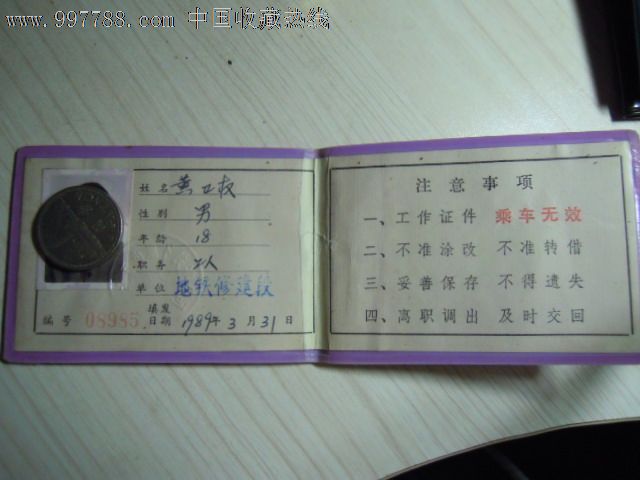 www.997788.com 中国收藏热线
姓名 黄卫权
性别 男
年龄 18
职务 工人
单位 地铁修建段
编号 08985 填发日期 1989年3月31日
注意事项
一、工作证件 乘车无效
二、不准涂改 不准转借
三、妥善保存 不得遗失
四、离职调出 及时交回